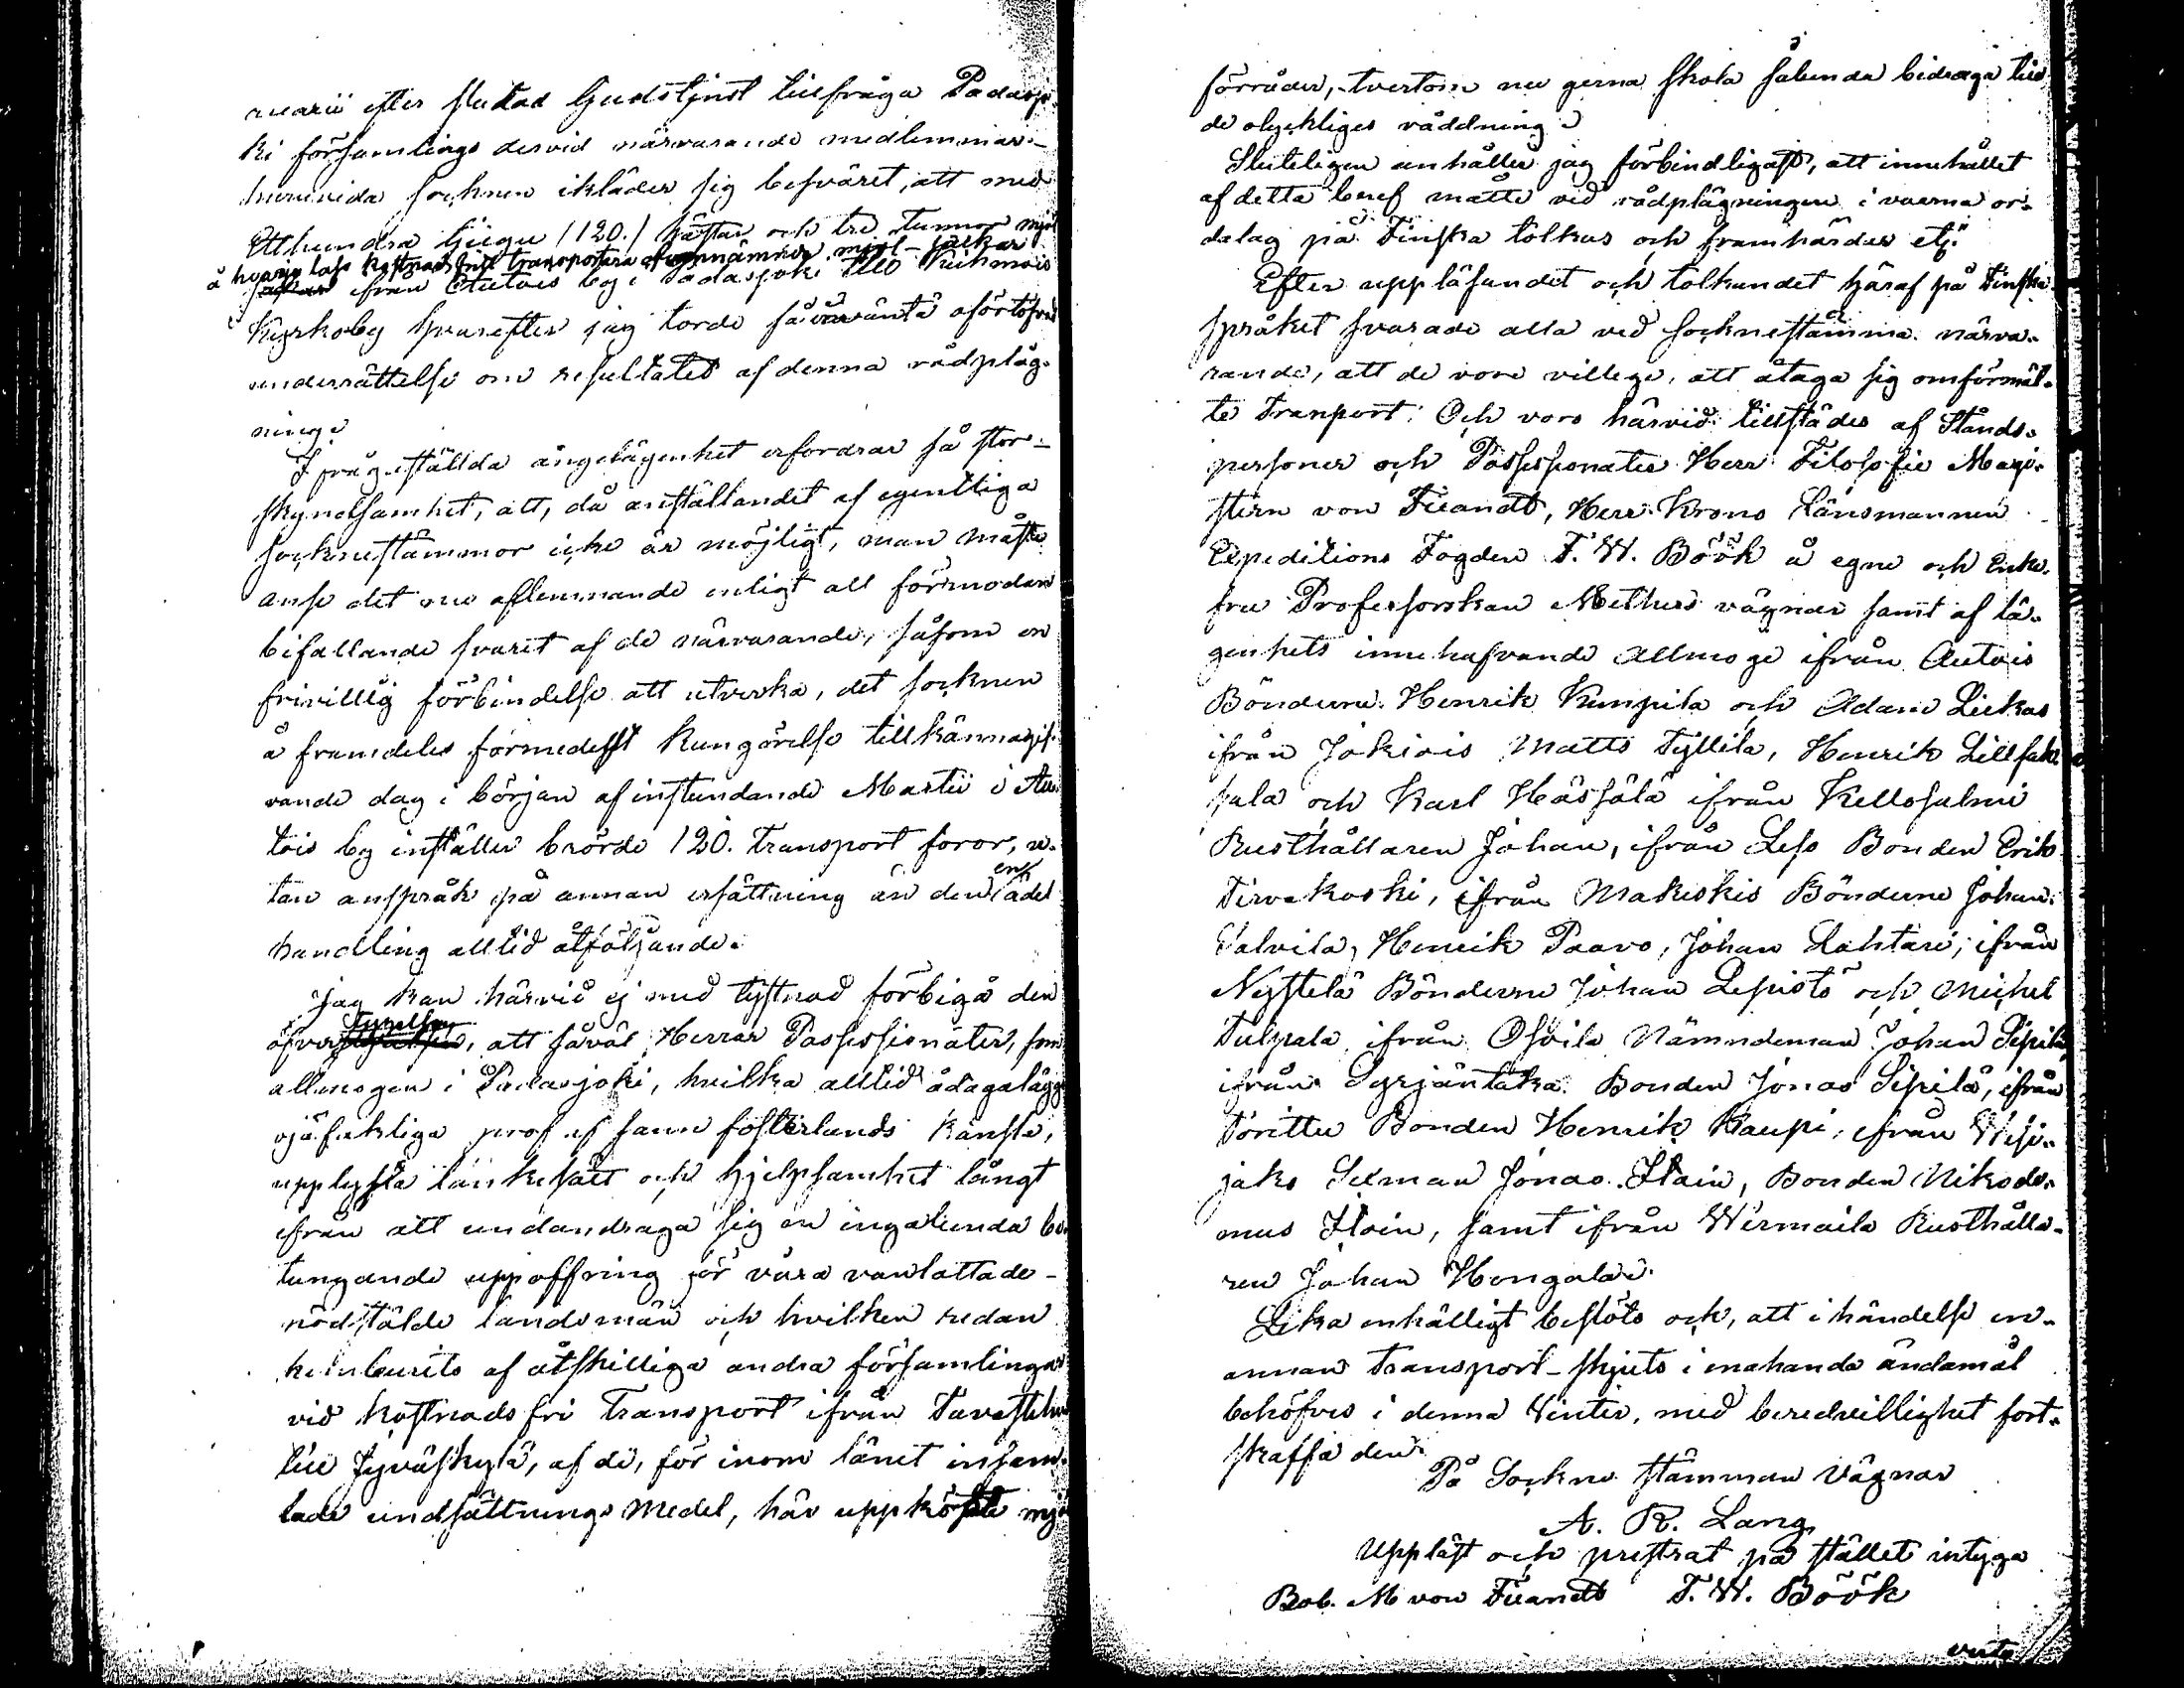 ruarii efter slutad Gudstjnst tillfråga Padasjo-
ki församlings dervid närvarande medlemmar -
huruvida socknen ikläder sig besväret, att med
Etthundra tjugu (120.) hästar och tre tunnor mjöl
å hvarje lass kostnadsfritt transportera ofvannämnde mjöl-säckar
ifrån Autois by i Padasjoki till Kuhmois
Kyrkoby hvarefter jag torde få vänta ofördröjd
underrättelse om resultatet af denna rådpläg-
ning.
Ifrågeställda angelägenhet erfordrar så stor -
skyndsamhet, att, då anställandet af egentliga
socknestämmor icke är möjligt, man måste
anse det nu aflemnande enligt all förmodan
bifallande svaret af de närvarande, såsom en
frivillig förbindelse att utverka, det socknen
å framdeles förmedelst kungörelse tillkännagif-
vande dag i början af instundande Martii i Au-
tois by inställer berörde 120. transport foror, u-
tan anspråk på annan ersättning än den en ädel
handling alltid åtföljande.
Jag kan härvid ej med tystnad förbigå den
öfvertygelsen, att såväl Herrar Possessionater, som
allmogen i Padasjoki, hvilka alltid ådagalaggt
ojäfaktiga prof af sann fosterlands känsla,
upplysta tänkesätt och hjelpsamhet långt
ifrån att undandraga sig en ingalunda be-
tungande uppoffring för våra vanlottade -
nödstälde landsmän och hvilken redan
af åtskilliga andra församlingar
vid kostnads fri Transport ifrån Tavastehus
till Jyväskylä, af de, för inom länet insam-
lade undsättnings Medel, här uppköpte mjöl
förråder, tvertom nu gerna skola sålunda bidraga till
de olyckliges räddning.
Sluteligen anhåller jag förbindligast, att innehållet
af detta bref måtte vid rådplägningen i varma or-
dalag på Finska tolkas och framhärdes etc:"
Efter uppläsandet och tolkandet häraf på Finska
språket svarade alla ved socknestämma närva-
rande, att de vore villige, att åtaga sig omförmäl-
te Tranport. Och voro härvid tillstädes af Stånds-
personer och Possessionater Herr Filosofie Magi-
stern von Fieandt, Herr Krono Länsmannen
Expeditions Fogden F. W. Böök å egne och Enke-
fru Professorskan Methers vägnar samt af lä-
genhets innehafvande Allmoge ifrån Autois
Bönderne Henrik Kumpila och Adam Liekas
ifrån Jokiois Matts Tyllilä, Henrik Lillsak-
sala och Karl Hässälä ifrån Kellosalmi
Rusthållaren Johan, ifrån Leso Bonden Erik
Tirvakoski, ifrån Makiskis Bönderne Johan
Salvila, Henrik Paavo, Johan Lahtari, ifrån
Nystelä Bönderne Johan Lepistö och Michel
Tulpala ifrån Osoila Nämndeman Johan Sipilä
ifrån Syrjäntaka Bonden Jonas Sipilä, ifrån
Torittu Bonden Henrik Kaupi, ifrån Wesi-
jako Sexman Jonas Iloin, Bonden Nikode-
mus Iloin, samt ifrån Wirmaila Rusthålla-
ren Johan Hongola.
Lika enhälligt beslöts ock, att i händelse en -
annan transport-skjuts i enahanda ändamål
behöfves i denna Vinter, med beredvillighet fort-
skaffa den.
På Sockne stämman Vägnar
A. R. Lang
Uppläst och prestrat på stället intyga
Bob. M von Fieandt F. W. Böök
verte